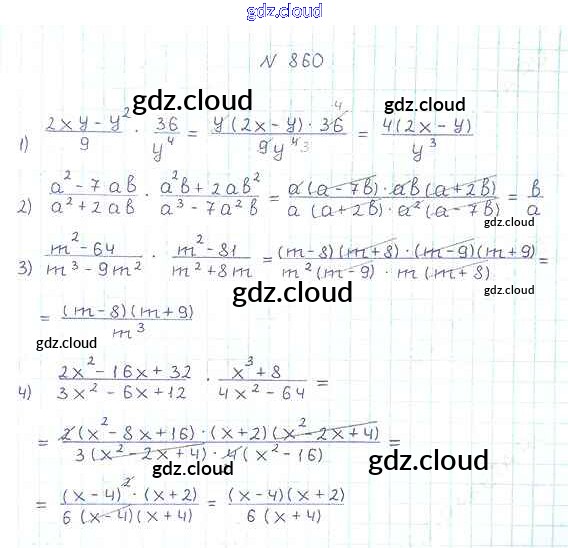 gdz.cloud
N 860
gdz.cloud
1) (2xy - y²)/9 · 36/y⁴ = (y(2x - y) · 36 4)/(9y⁴ 3) = (4(2x - y))/y³
gdz.cloud gdz.cloud
2) (a² - 7ab)/(a² + 2ab) · (a²b + 2ab²)/(a³ - 7a²b) = (a(a - 7b) · ab(a + 2b))/(a(a + 2b) · a²(a - 7b)) = b/a
gdz.cloud
3) (m² - 64)/(m³ - 9m²) · (m² - 81)/(m² + 8m) = ((m - 8)(m + 8) · (m - 9)(m + 9))/(m²(m - 9) · m(m + 8)) =
gdz.cloud gdz.cloud
= ((m - 8)(m + 9))/m³
gdz.cloud
gdz.cloud
4) (2x² - 16x + 32)/(3x² - 6x + 12) · (x³ + 8)/(4x² - 64) =
= (2(x² - 8x + 16) · (x + 2)(x² - 2x + 4))/(3(x² - 2x + 4) · 4(x² - 16)) =
gdz.cloud gdz.cloud
= ((x - 4)² · (x + 2))/(6(x - 4)(x + 4)) = ((x - 4)(x + 2))/(6(x + 4))
gdz.cloud